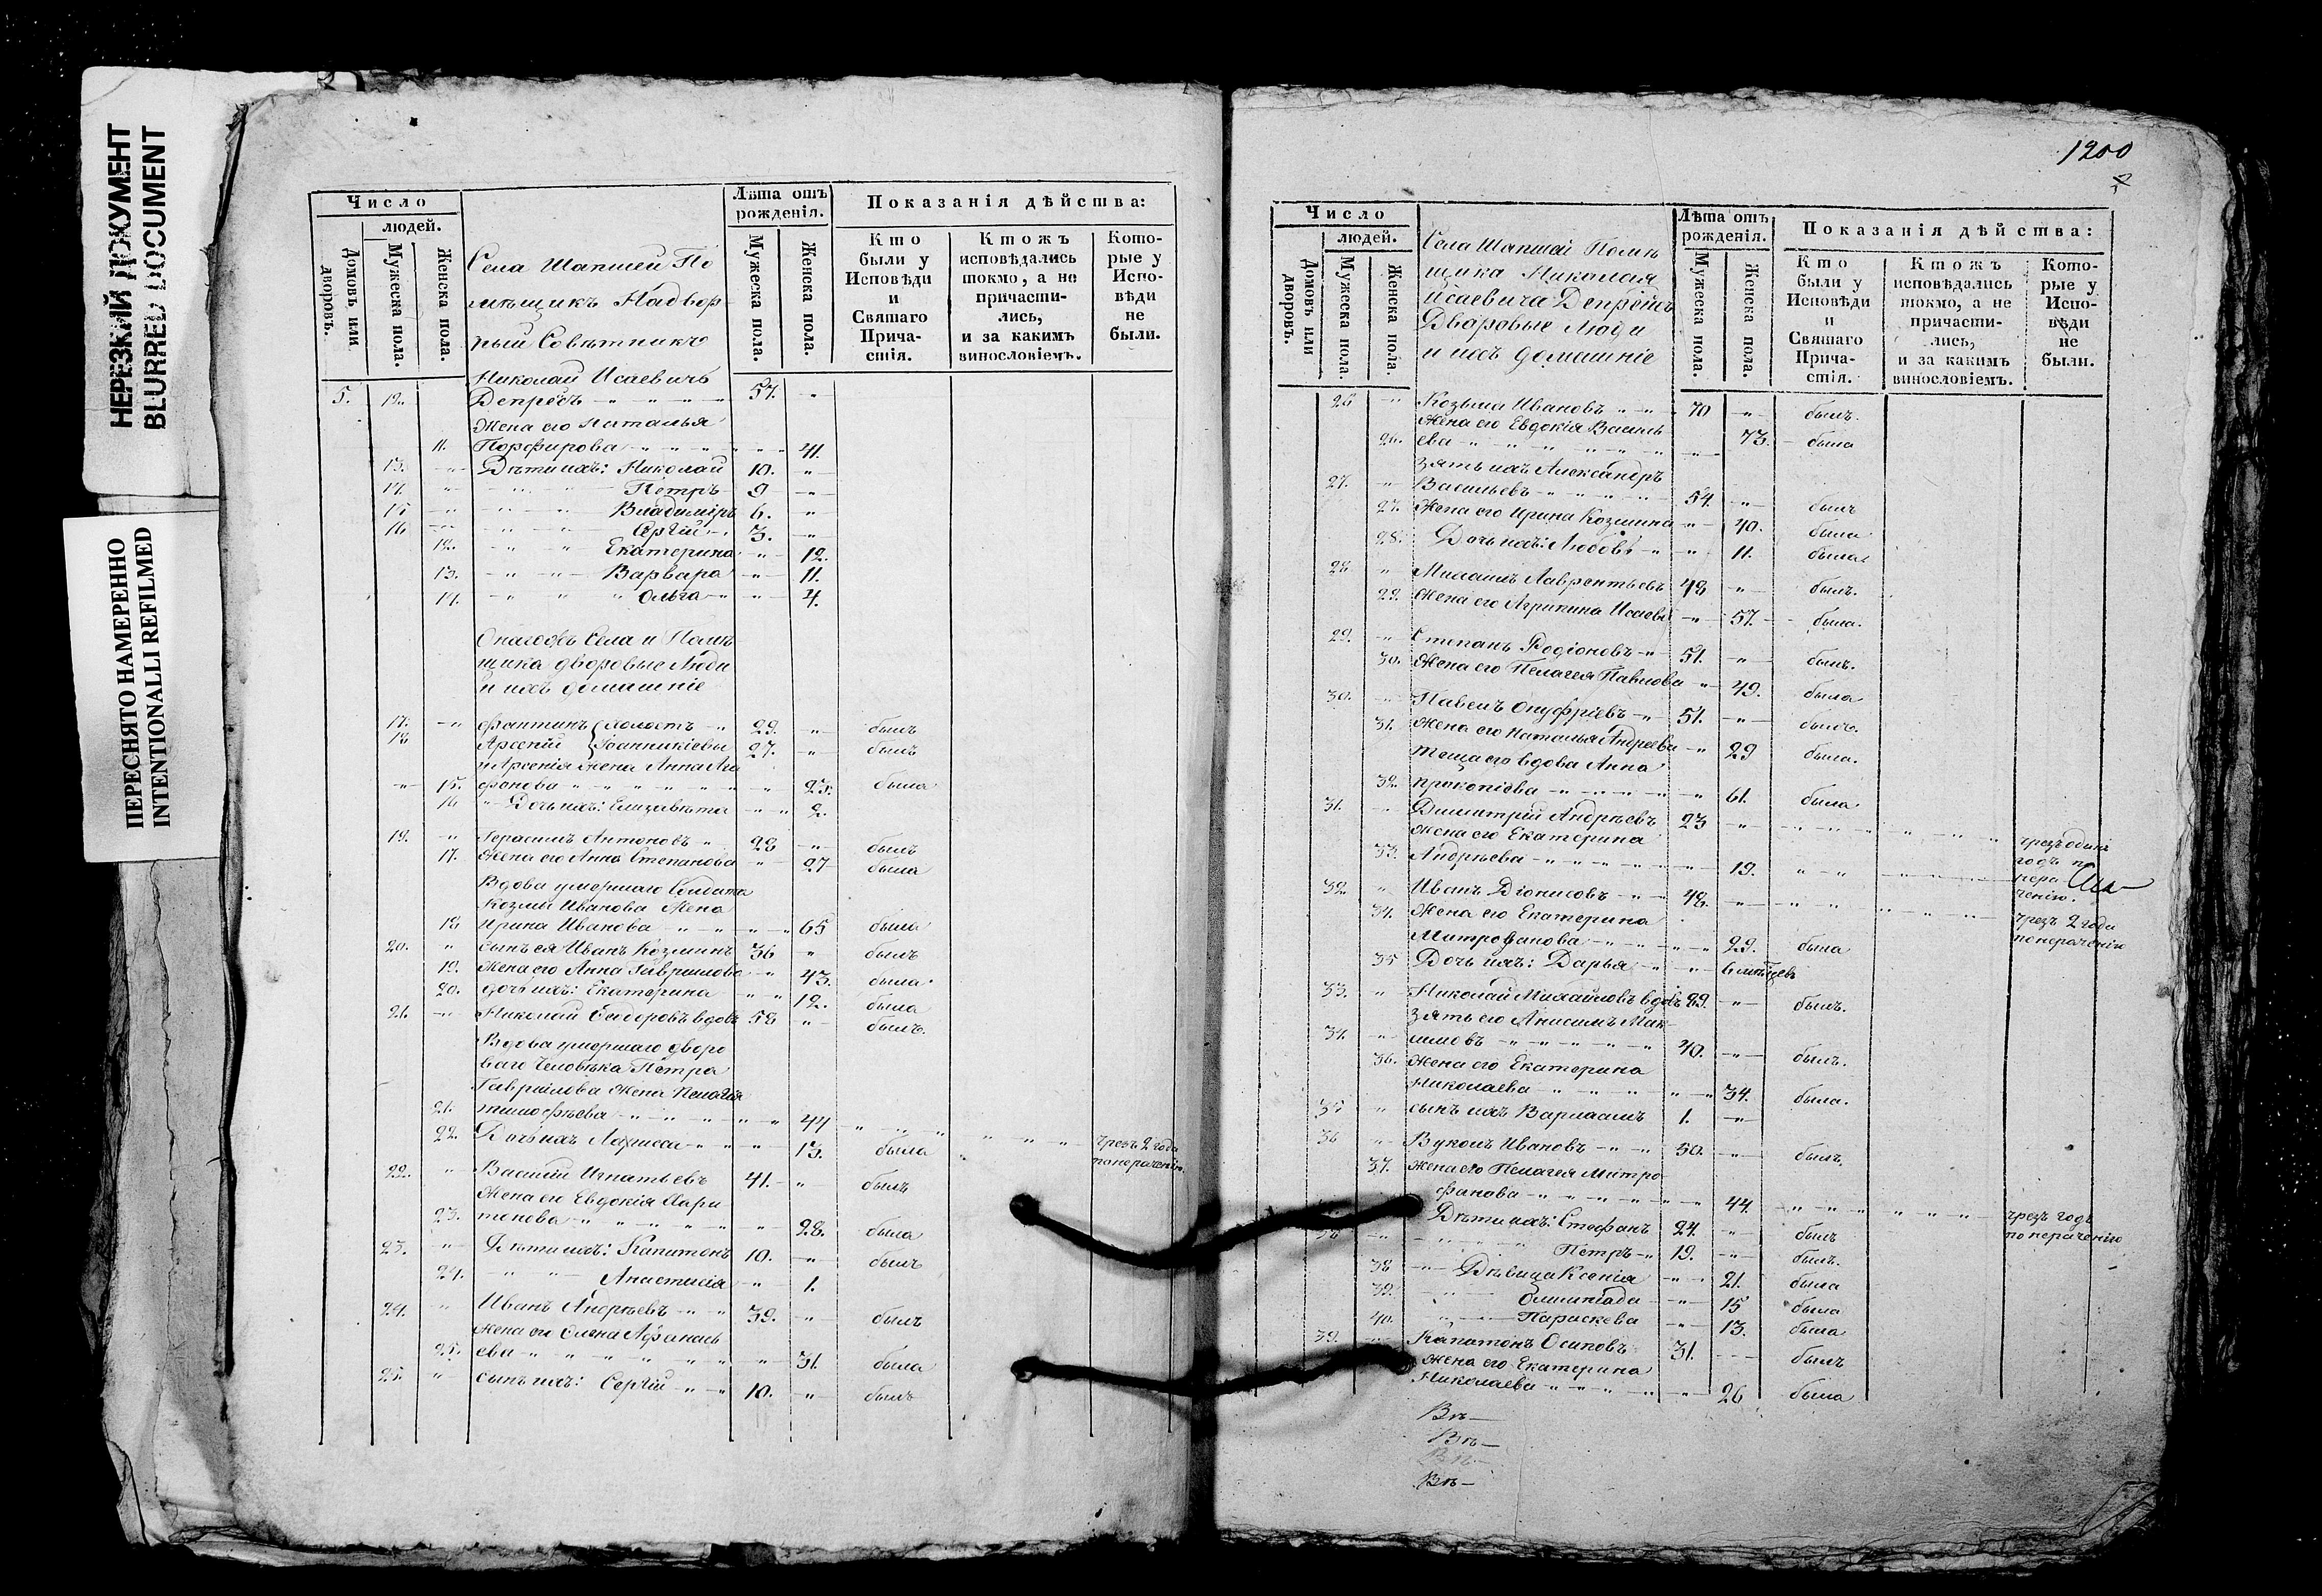 НЕРЕЗКИЙ ДОКУМЕНТ
BLURRED DOCUMENT
ПЕРЕСНЯТО НАМЕРЕННО
INTENTIONALLI REFILMED
Число
людей.
Домовъ или дворовъ.
Мужеска пола.
Женска пола.
Села Шапшей По
мѣщикъ Надвор
ный Совѣтникъ
Лѣта отъ рожденія.
Мужеска пола.
Женска пола.
Показанія дѣйства:
Кто были у Исповѣди и Святаго Причастія.
Ктожъ исповѣдались токмо, а не причастились, и за какимъ винословіемъ.
Которые у Исповѣди не были.
Николай Исаевичь
5. 12. Депресъ 57.
Жена его Наталья
11. Порфирова 41.
13. Дѣти ихъ: Николай 10.
14. Петръ 9
15 Владимiръ 6.
16 Сергiй 3.
12. Екатерина 12.
13. Варвара 11.
14. Ольга 4.
Онагожъ Села и Помѣ
щика дворовые Люди
и ихъ домашніе
17. холостъ 29. былъ
18 Арсенiй Іоанникіевы 27. былъ
и Арсенія жена Анна Ага
15. фонова 23. была
16 Дочь ихъ: Елизавѣта 2.
19. Герасимъ Антоновъ 28 былъ
17. Жена его Анна Степанова 27 была
Вдова умершаго Солдата
Козмы Иванова Жена
18 Ирина Иванова 65 была
20. сынъ ея Иванъ Козминъ 36 былъ
19. Жена его Анна Гаврилова 43. была
20. дочь ихъ: Екатерина 12. была
21. Николай Сидоровъ вдовъ 58 былъ.
Вдова умершаго дворо
ваго Человѣка Петра
Гаврилова Жена Пелагія
21. тимофѣева 44 чрезъ 2 года
по нераченію.
22. Дочь ихъ Лариса 13. была
22. Василій Игнатьевъ 41. былъ
Жена его Евдокія Хари
23. тонова 28. была
23. Дѣти ихъ: Капитонъ 10. былъ
24. Анастасія 1.
24. Иванъ Андрѣевъ 39. былъ
Жена его Елена Афанась
25. ева 31. была
25. сынъ ихъ: Сергій 10. былъ
1200
Число
людей.
Домовъ или дворовъ.
Мужеска пола.
Женска пола.
Села Шапшей Помѣ
щика Николая
Исаевича Депрейсъ
Дворовые Люди
и ихъ домашніе
Лѣта отъ рожденія.
Мужеска пола.
Женска пола.
Показанія дѣйства:
Кто были у Исповѣди и Святаго Причастія.
Ктожъ исповѣдались токмо, а не причастились, и за какимъ винословіемъ.
Которые у Исповѣди не были.
26 Козьма Ивановъ 70 былъ.
Жена его Евдокія Василь
26. ева 73. была
Зять ихъ Александръ
27. Васильевъ 54. былъ
27. Жена его Ирина Козмина 40. была
28. Дочь ихъ: Любовь 11. была
28 Михаилъ Лаврентьевъ 48 былъ.
29. Жена его Агрипина Исаева 57. была.
29. Степанъ Родіоновъ 51. былъ.
30. Жена его Пелагея Павлова 49. была
30. Павелъ Онуфріевъ 51. былъ.
31. Жена его Наталья Андреева 29 была.
Теща его вдова Анна
32. прокопіова 61. была
31. Димитрій Андрѣевъ 23 чрезъ одинъ
Жена его Екатерина годъ по
33. Андрѣева 19. нера
ченію.
32. Иванъ Діонисовъ 48. чрезъ 2 года
по нераченію
34. Жена его Екатерина
Митрофанова 29. была
35 Дочь ихъ: Дарья 6 мѣсяцевъ
33. Николай Михайловъ вдовъ 89. былъ.
Зять его Анисимъ Мак-
34. симовъ 40. былъ.
36. Жена его Екатерина
Николаева 34. была.
35 сынъ ихъ Варлаамъ 1.
36 Вуколъ Ивановъ 50. былъ,
37. жена его Пелагея Митро
фанова 44. чрезъ годъ
по нераченію
Дѣти ихъ: Стефанъ 24. былъ
38 Петръ 19. былъ.
38 Дѣвица Ксенія 21. была
39. Олимпіада 15 была
40. Параскева 13. была
39. Капитонъ Осиповъ 31. былъ
Жена его Екатерина
Николаева 26 была
Въ
Въ
Въ
Въ